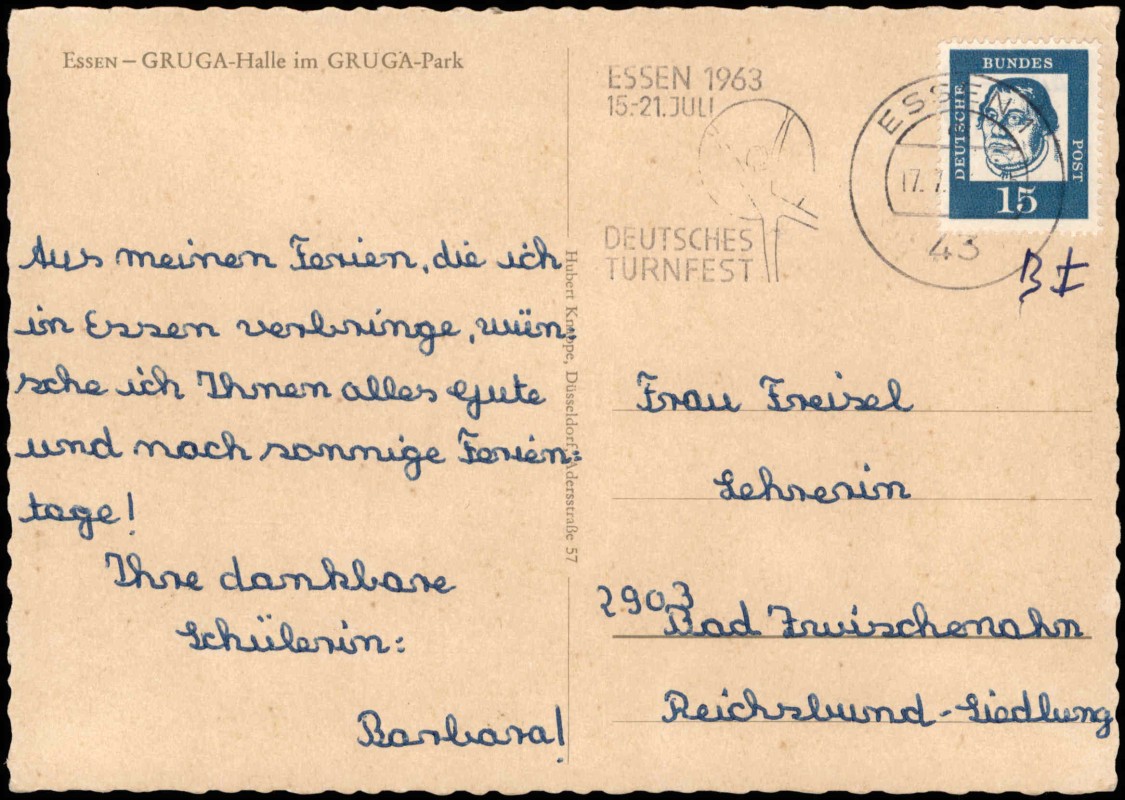 ESSEN – GRUGA-Halle im GRUGA-Park
Aus meinen Ferien, die ich
in Essen verbringe, wün-
sche ich Ihnen alles Gute
und noch sonnige Ferien-
tage!
Ihre dankbare
Schülerin:
Barbara!
Hubert Knappe, Düsseldorf, Adersstraße 57
ESSEN 1963
15.-21. JULI
DEUTSCHES
TURNFEST
ESSEN 1
17. 7.
43
BUNDES
DEUTSCHE
POST
15
Frau Freisel
Lehrerin
2903
Bad Zwischenahn
Reichsbund-Siedlung